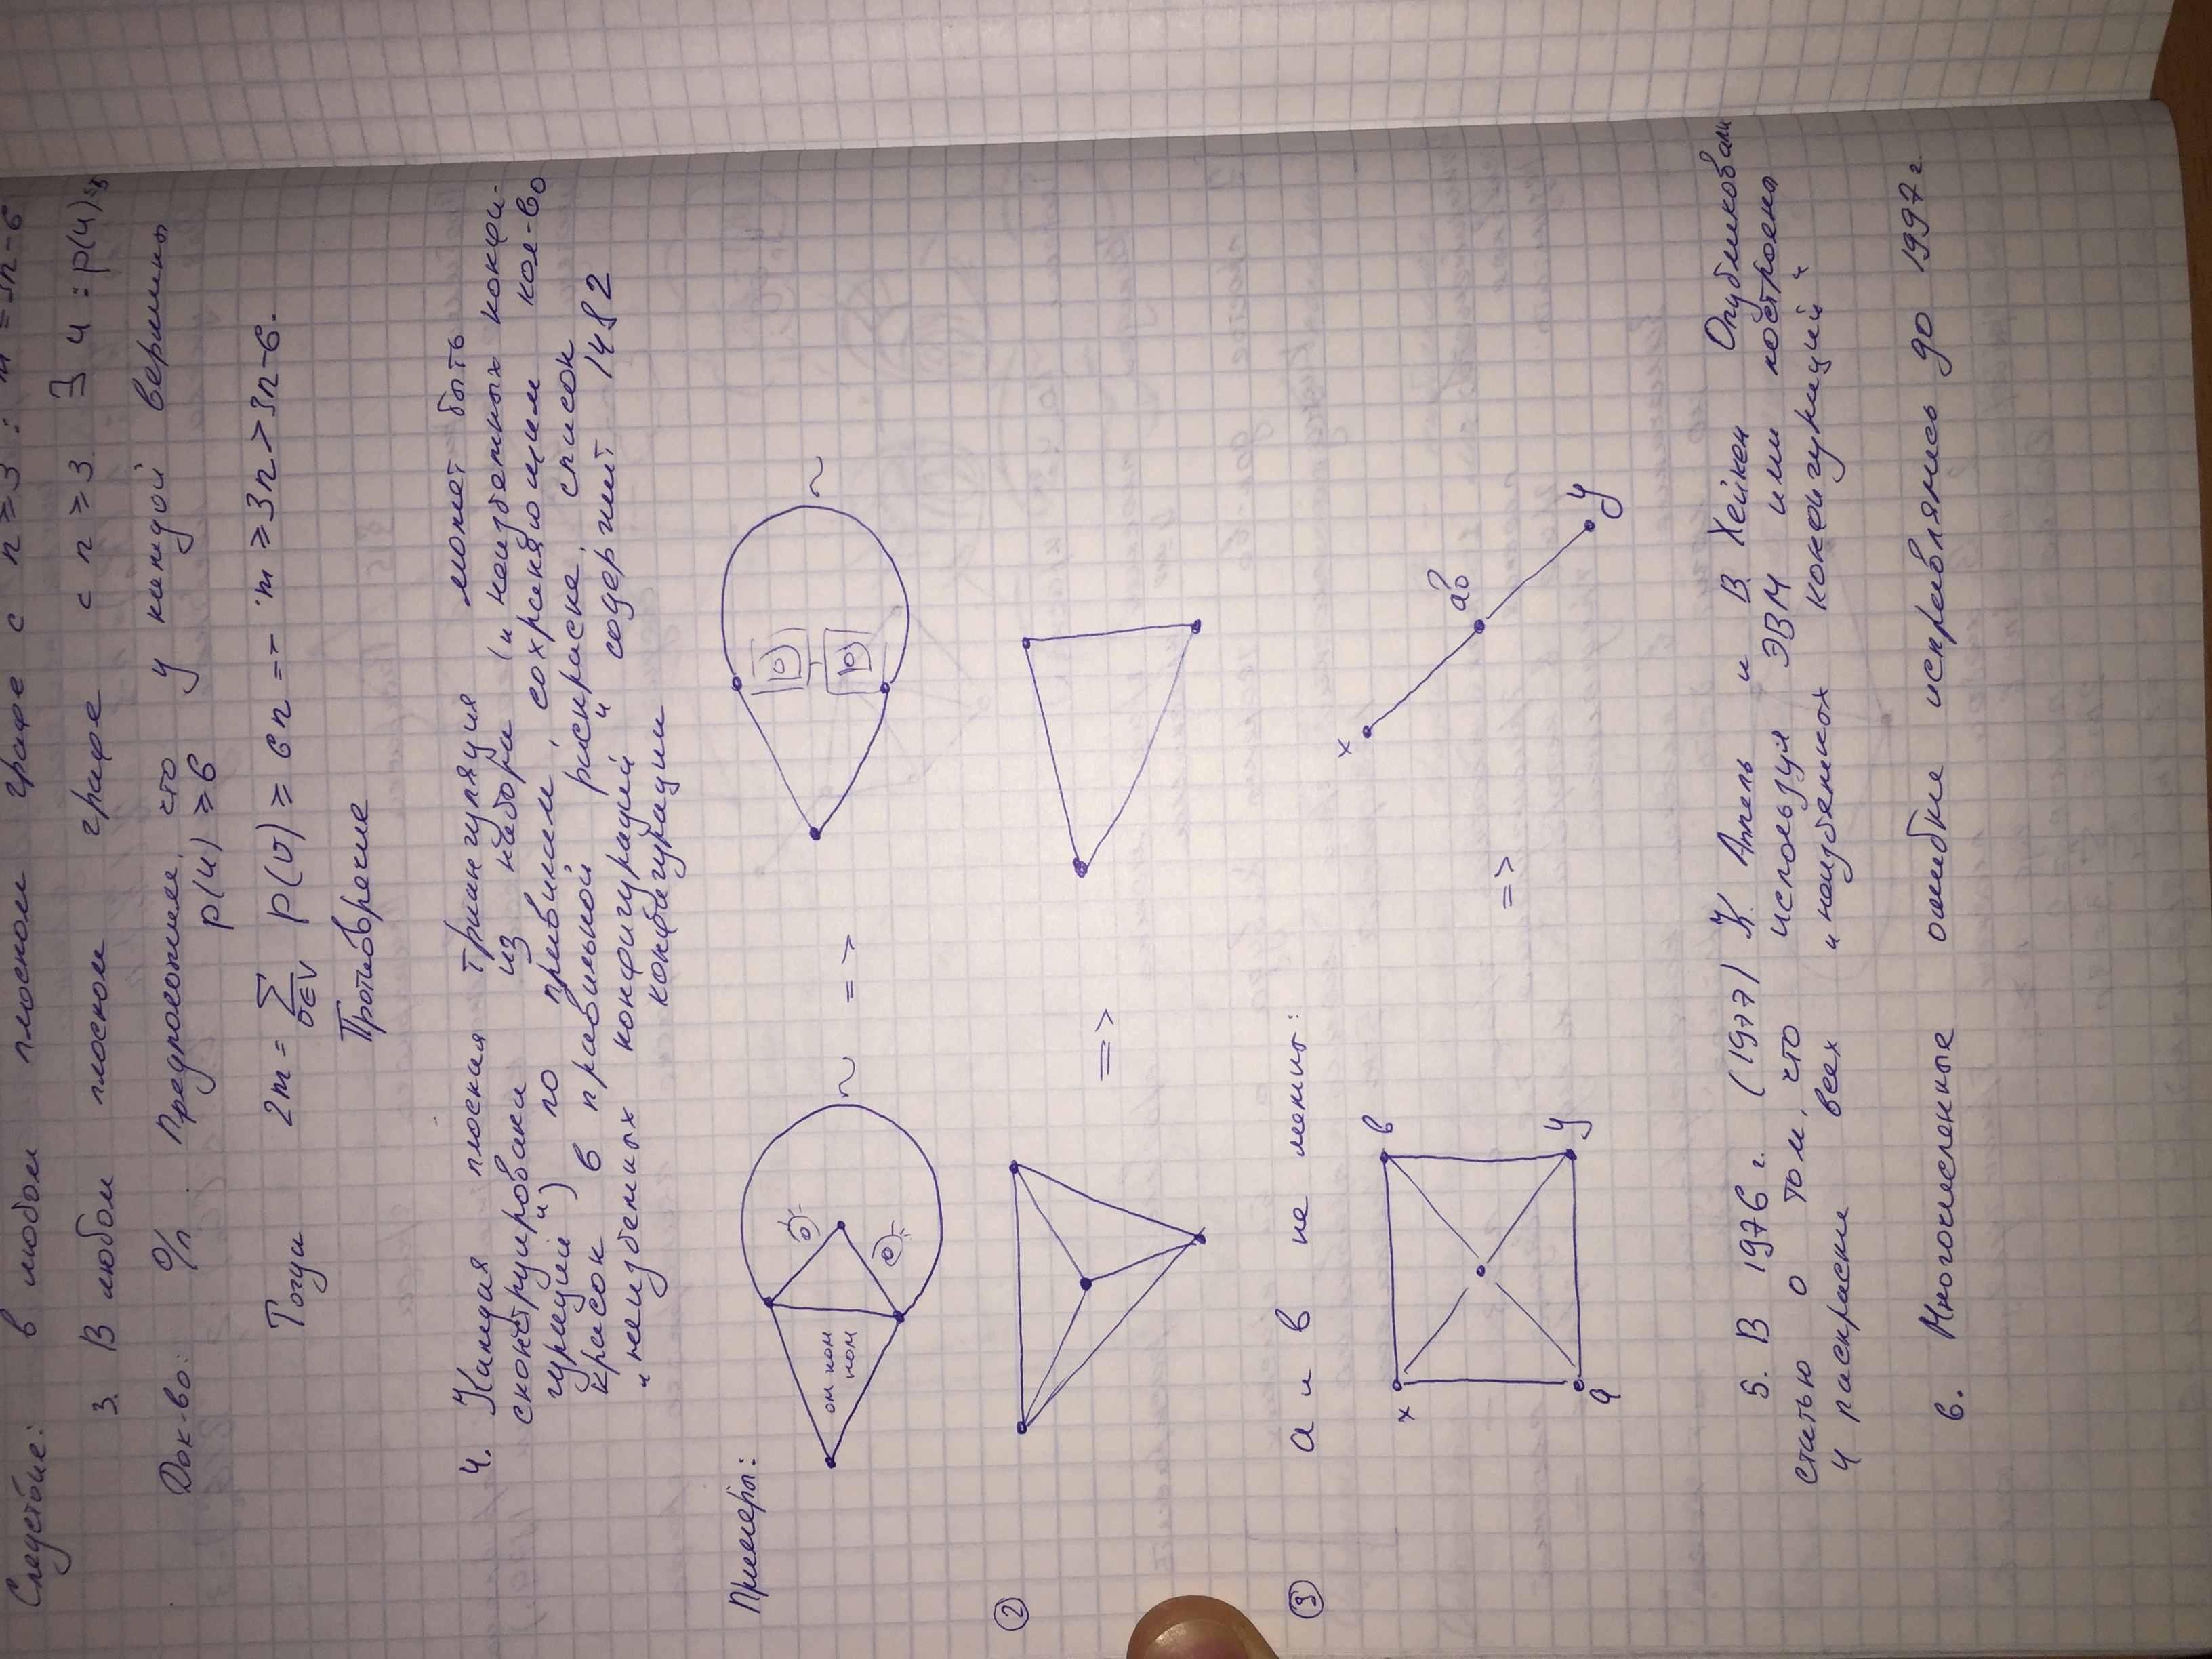 Следствие: в любом плоском графе с n ≥ 3 : m = 3n-6
3. В любом плоском графе с n ≥ 3. ∃ u : p(u) ≤ 5
Док-во: О/п. Предположим, что у каждой вершины
p(u) ≥ 6
Тогда 2m = Σ p(v) ≥ 6n => m ≥ 3n > 3n-6.
v∈V
Противоречие
4. Каждая плоская триангуляция может быть
сконструирована из набора („неизбежных конфи-
гураций“) по правилам, сохраняющим кол-во
красок в правильной раскраске, список
„неизбежных конфигураций“ содержит 1482
конфигурации
Примеры:
ом ном
ном
~ => ~
②
=>
③ a и b не смежны:
x b
x
ab
=>
a y
y
5. В 1976 г. (1977) К. Аппель и В. Хейкен Опубликовали
статью о том, что используя ЭВМ ими построены
4 раскраски всех „неизбежных конфигураций“
6. Многочисленные ошибки исправлялись до 1997 г.